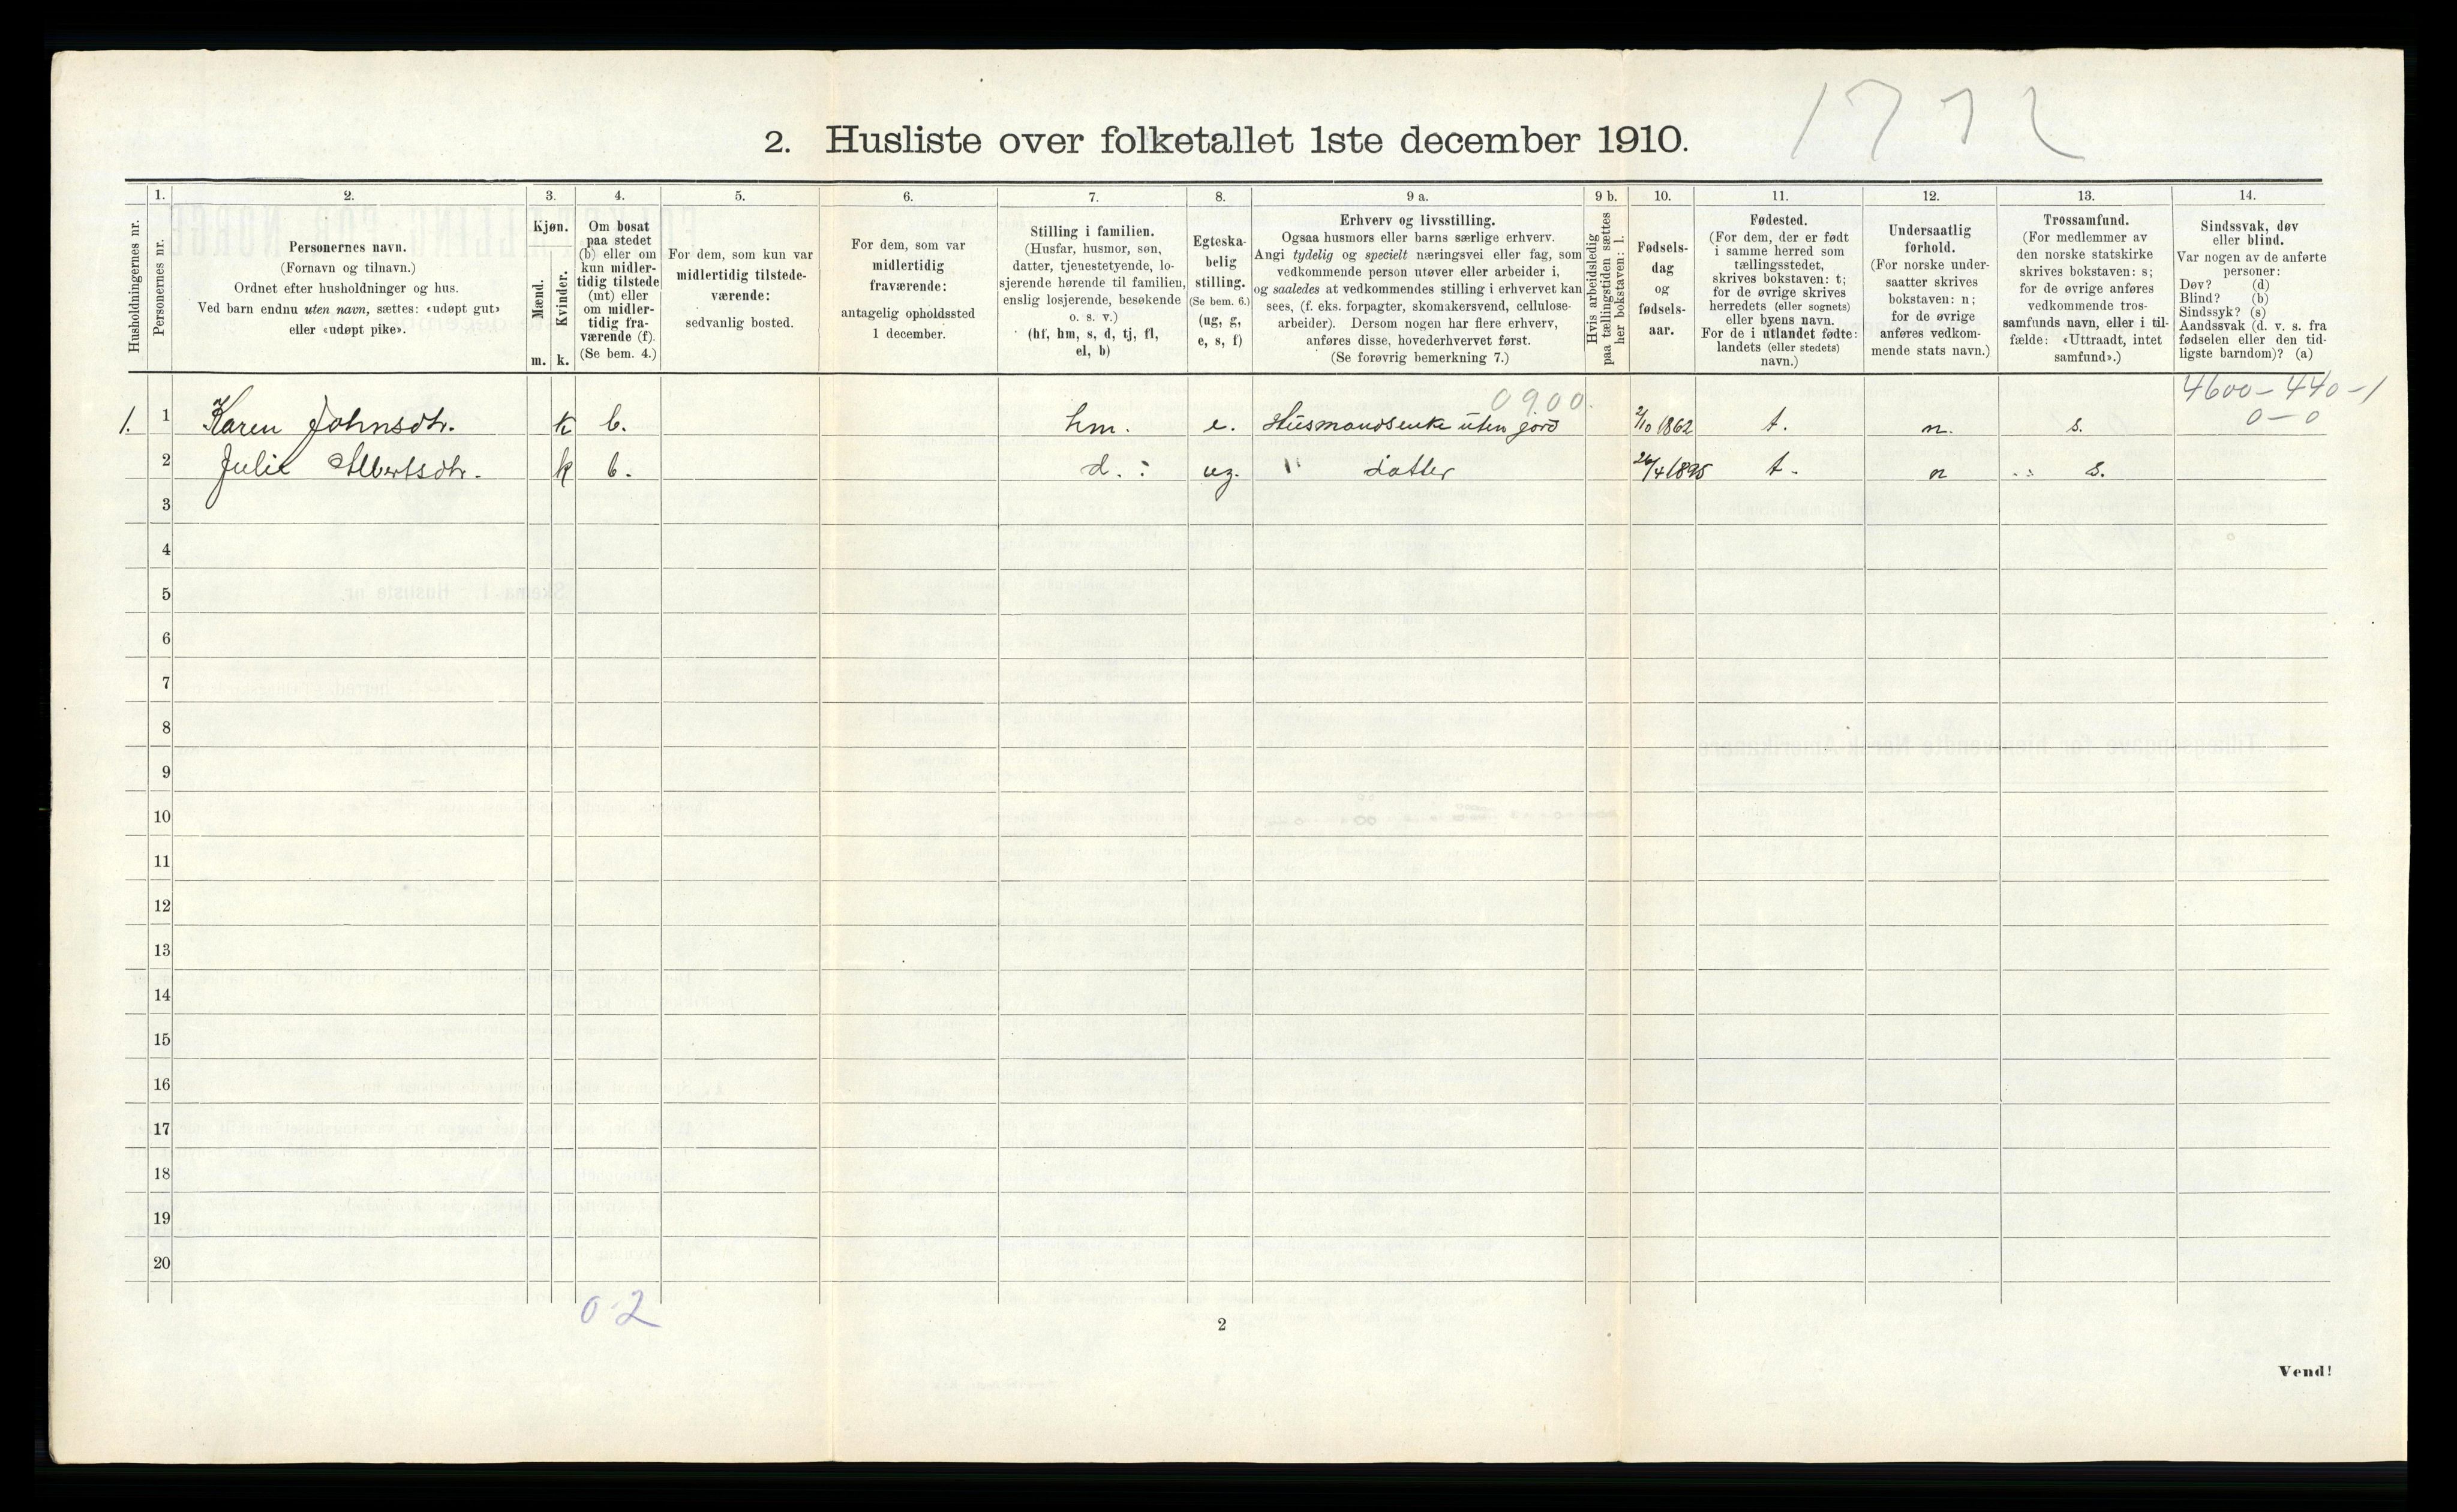 1772
2. Husliste over folketallet 1ste december 1910.
Husholdningernes nr.
1.
Personernes nr.
2.
Personernes navn.
(Fornavn og tilnavn.)
Ordnet efter husholdninger og hus.
Ved barn endnu uten navn, sættes: «udøpt gut»
eller «udøpt pike».
3.
Kjøn.
Mænd.
m.
Kvinder.
k.
4.
Om bosat
paa stedet
(b) eller om
kun midler-
tidig tilstede
(mt) eller
om midler-
tidig fra-
værende (f).
(Se bem. 4.)
5.
For dem, som kun var
midlertidig tilstede-
værende:
sedvanlig bosted.
6.
For dem, som var
midlertidig
fraværende:
antagelig opholdssted
1 december.
7.
Stilling i familien.
(Husfar, husmor, søn,
datter, tjenestetyende, lo-
sjerende hørende til familien,
enslig losjerende, besøkende
o. s. v.)
(hf, hm, s, d, tj, fl,
el, b)
8.
Egteska-
belig
stilling.
(Se bem. 6.)
(ug, g,
e, s, f)
9 a.
Erhverv og livsstilling.
Ogsaa husmors eller barns særlige erhverv.
Angi tydelig og specielt næringsvei eller fag, som
vedkommende person utøver eller arbeider i,
og saaledes at vedkommendes stilling i erhvervet kan
sees, (f. eks. forpagter, skomakersvend, cellulose-
arbeider). Dersom nogen har flere erhverv,
anføres disse, hovederhvervet først.
(Se forøvrig bemerkning 7.)
9 b.
Hvis arbeidsledig
paa tællingstiden sættes
her bokstaven: l.
10.
Fødsels-
dag
og
fødsels-
aar.
11.
Fødested.
(For dem, der er født
i samme herred som
tællingsstedet,
skrives bokstaven: t;
for de øvrige skrives
herredets (eller sognets)
eller byens navn.
For de i utlandet fødte:
landets (eller stedets)
navn.)
12.
Undersaatlig
forhold.
(For norske under-
saatter skrives
bokstaven: n;
for de øvrige
anføres vedkom-
mende stats navn.)
13.
Trossamfund.
(For medlemmer av
den norske statskirke
skrives bokstaven: s;
for de øvrige anføres
vedkommende tros-
samfunds navn, eller i til-
fælde: «Uttraadt, intet
samfund».)
14.
Sindssvak, døv
eller blind.
Var nogen av de anførte
personer:
Døv? (d)
Blind? (b)
Sindssyk? (s)
Aandssvak (d. v. s. fra
fødselen eller den tid-
ligste barndom)? (a)
0900. 4600-440-1
1. 1 Karen Johnsdtr. k b. hm. e. Husmandsenke uten jord 2/10 1862 t. n. s. 0-0
2 Julie Albertsdtr. k b. d. ug. " datter 26/4 1895 t. n s.
3
4
5
6
7
8
9
10
11
12
13
14
15
16
17
18
19
20
0-2
2
Vend!